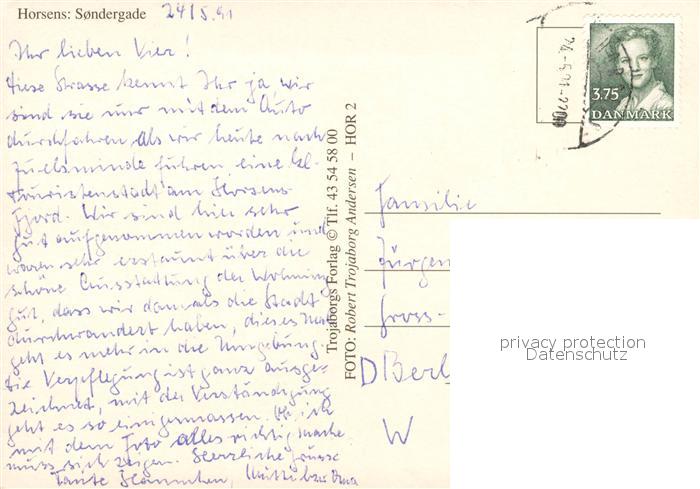 Horsens: Søndergade
24/5.91
Ihr lieben Vier!
diese Strasse kennt Ihr ja, wir
sind sie nur mit dem Auto
durchfahren, als wir heute nach
Juelsminde fuhren, eine kl.
Touristenstadt am Horsens-
Fjord. Wir sind hier sehr
gut aufgenommen worden und
waren sehr erstaunt über die
schöne Ausstattung der Wohnung
gut, dass wir damals die Stadt
durchwandert haben, dieses Mal
geht es mehr in die Umgebung.
Die Verpflegung ist ganz ausge-
zeichnet, mit der Verständigung
geht es so einigermassen. Ob ich
mit dem Foto alles richtig mache
muss sich zeigen. Herzliche Grüsse
Tante Hannchen, Mutti bzw Oma
Trojaborgs Forlag © Tlf. 43 54 58 00
FOTO: Robert Trojaborg Andersen – HOR 2
3.75
DANMARK
Familie
Jürgen
Gross-
D Berl
W
privacy protection
Datenschutz